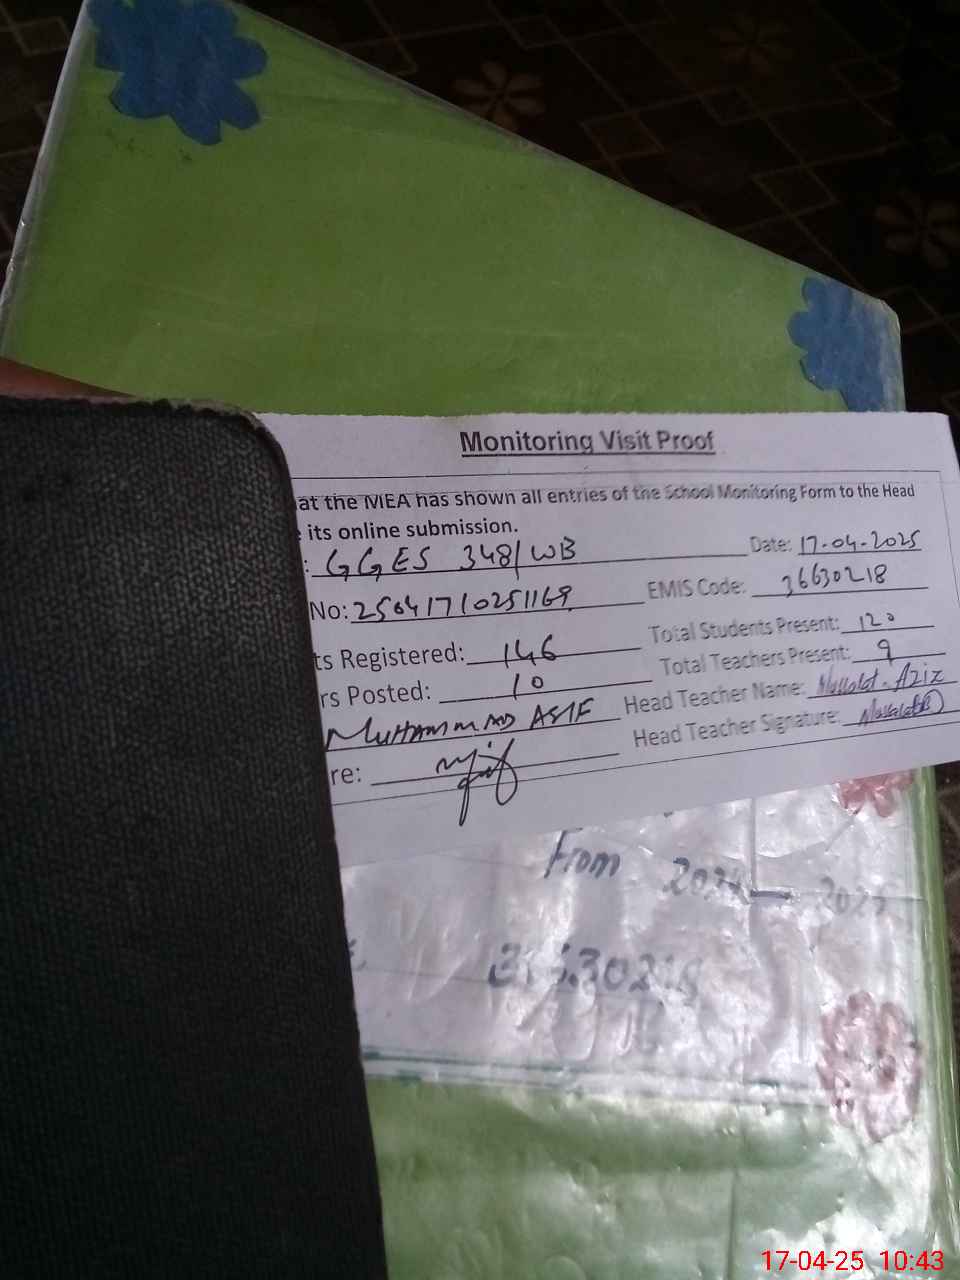 Monitoring Visit Proof
at the MEA has shown all entries of the School Monitoring Form to the Head
its online submission.
: GGES 348/WB Date: 17-04-2025
No: 25041710251169 EMIS Code: 36630218
ts Registered: 146 Total Students Present: 120
rs Posted: 10 Total Teachers Present: 9
MUHAMMAD ASIF Head Teacher Name: Aziz
re: Head Teacher Signature:
From 2024 — 2025
36630218
17-04-25 10:43